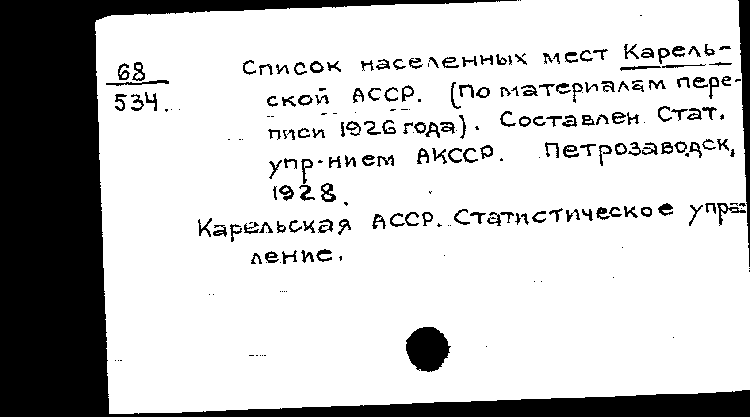 68
534.
Список населенных мест Карель-
ской АССР. (По материалам пере-
писи 1926 года). Составлен Стат.
упр-нием АКССР. Петрозаводск,
1928.
Карельская АССР. Статистическое упра-
ление.